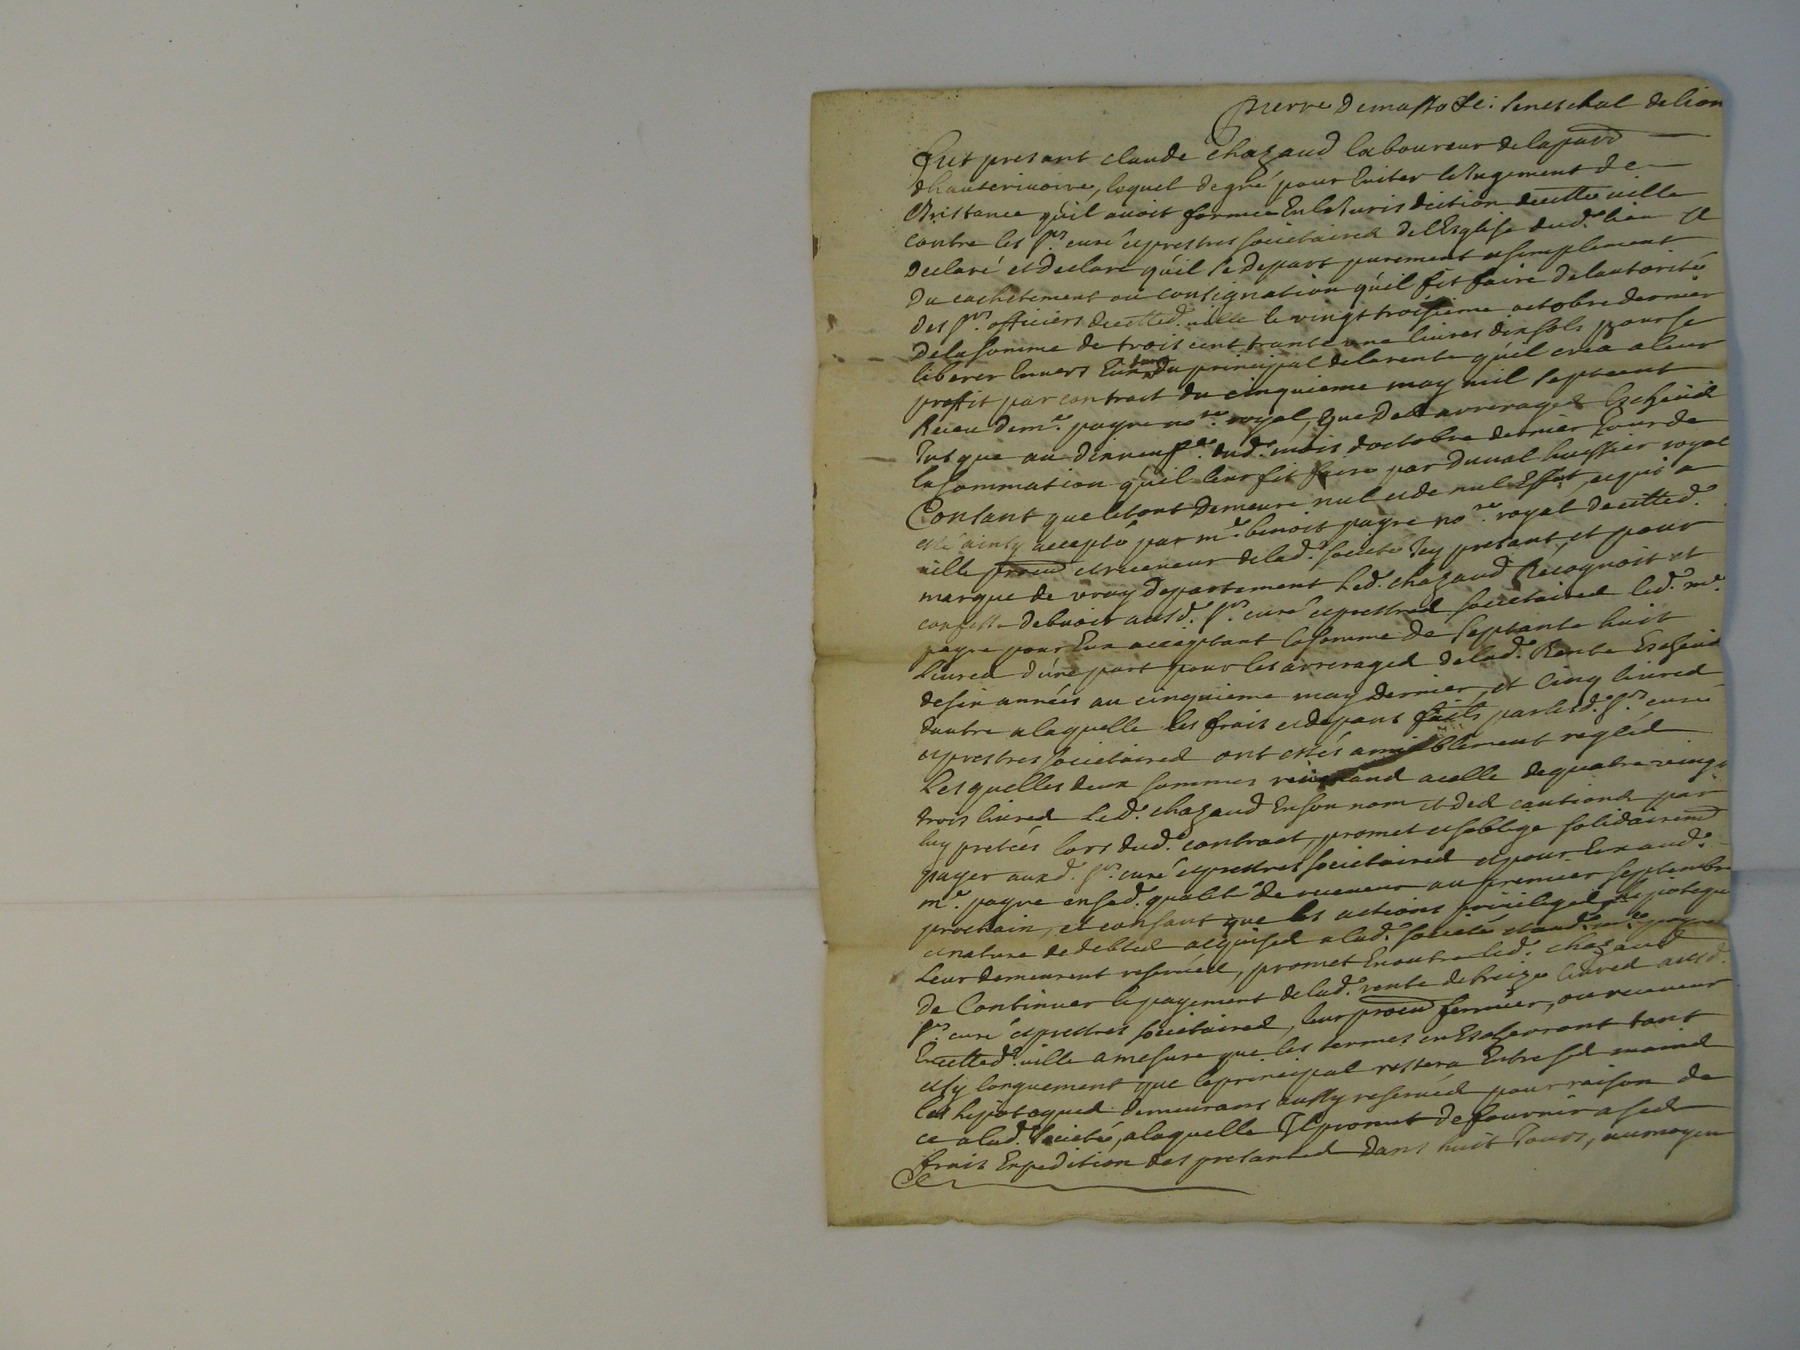 Pierre Demasso &c: seneschal de lion
fut presant claude chazaud laboureur de la parr
dhauterivoire, lequel de gré pour Eviter le Jugement de
L'instance qu'il avoit formée En la Jurisdiction decette ville
contre les srs curé et prestres societaires de l'Esglise dud. lieu a
declaré et declare qu'il se depart purement et simplement
du cachetement ou consignation qu'il fit faire de lautorité
des srs officiers decetted. ville le vingt troisieme octobre dernier
de la somme de trois cent trante une livres dix sols pour se
liberer Envers Eux tant du principal de la rente qu'il crea a leur
proffit par contract du cinquieme may mil sept cent
Receu de me. payre nore royal, que des arrerages Escheus
Jusque au dixneufe. dud. mois doctobre dernier Jour de
la sommation qu'il leur fit faire par Duval huissier royal
Consant que le tout demeure nul et de nul Effet, ce qui a
esté ainsy accepté par me benoist payre nore royal decetted.
ville procur et receveur de lad. societé Icy presant, et pour
marque de vray departement Led. chazaud Recognoit et
confesse debvoir ausd. srs curé et prestres societaires led. me.
payre pour Eux acceptant la somme de septante huit
Livres d'une part pour les arrerages de lad. Rente Escheus
de six années au cinquieme may dernier, et Cinq livres
dautre a laquelle les frais et depans faits par lesd. srs curé
et prestres societaires ont estés amiablement reglés
Lesquelles deux sommes revenand a celle de quatre vingt
trois livres Led. chazaud En son nom et des cautions par
luy pretées lors dud. contract, promet et soblige solidairemt
payer auxd. srs curé et prestres societaires et pour Eux aud.
me. payre en sad. qualité de receveur au premier septembre
prochain, et consant que les actions privileges hypoteque
et nature de debtes acquises a lad. societé et aud. me payre
Leur demeurent reservées, promet En outre led. chazaud
de Continuer le payement de lad. rente de treize livres ausd.
srs curé et prestres societaires, leur procur fermier, ou receveur
En cetted. ville a mesure que les termes en Escherront tant
et sy longuement que le principal restera Entre ses mains
Les hypoteques demeurans aussy reservées pour raison de
ce a lad. societé, a laquelle Il promet de fournir a ses
frais Expedition des presantes dans huit Jours, au moyen